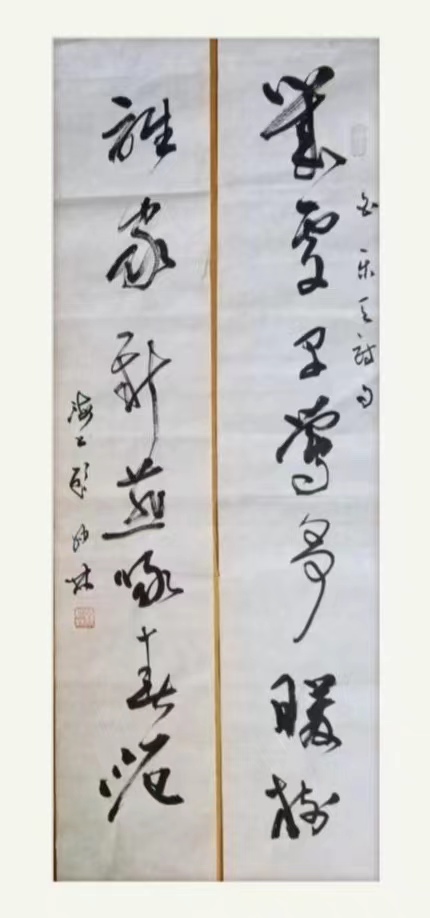 白樂天詩句
幾處早鶯爭暖樹
誰家新燕啄春泥
海上